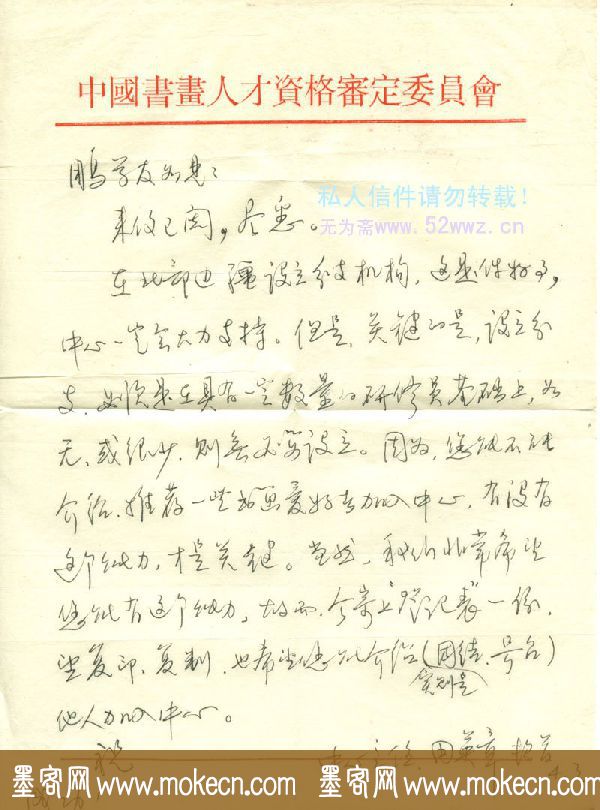 中國書畫人才資格審定委員會
鹏学友如见:
私人信件请勿转载!
来信已阅,尽悉。
无为斋www.52wwz.cn
在北部边疆设立分支机构,这是件好事,
中心一定会大力支持。但是,关键的是,设立分
支,必须是在具有一定数量的研修员基础上,如
无、或很少,则无必要设立。因为,您能不能
介绍、推荐一些书画爱好者加入中心,有没有
这个能力,才是关键。当然,我们非常希望
您能有这个能力,故而,今寄上登记表一份,
望复印、复制,也希望您能介绍(团结、号召)
他人加入中心。
祝
墨客网 www.mokecn.com 墨客网 www.mokecn.com